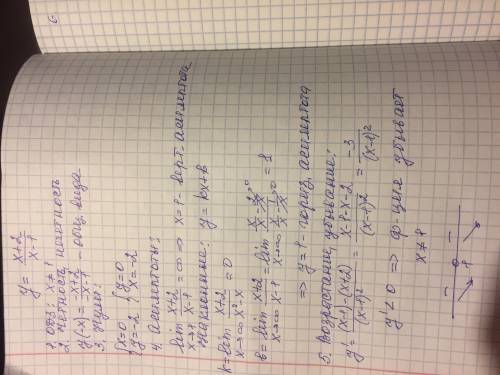 6
y = (x+2)/(x-1)
1. ОВЗ: x ≠ 1
2. Четность, нечетность
y(-x) = (-x+2)/(-x-1) - общ. вида
3. Нули:
{x=0 {y=0
{y=-2 {x=-2
4. Асимптоты:
lim x→1 (x+2)/(x-1) = ∞ ⇒ x=1 - верт. асимптота
Наклонные: y = kx+b
k = lim x→∞ (x+2)/(x²-x) = 0
b = lim x→∞ (x+2)/(x-1) = lim x→∞ (x/x + 2/x →0)/(x/x - 1/x →0) = 1
⇒ y=1 - гориз. асимптота
5. Возрастание, убывание:
y' = ((x-1)-(x+2))/(x-1)² = (x-1-x-2)/(x-1)² = -3/(x-1)²
y' < 0 ⇒ ф-ция убывает
x ≠ 1
- 1 -